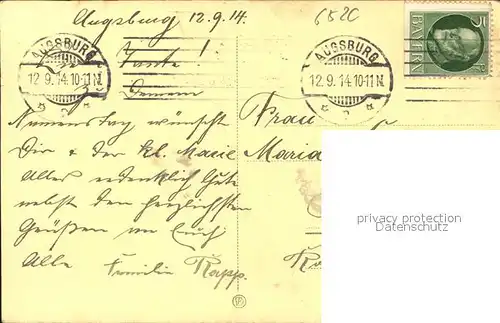 Augsburg 12.9.14.
6520
AUGSBURG
12.9.14.10-11N.
AUGSBURG
12.9.14.10-11N.
5
BAYERN
Tante!
Namenstag wünscht
Dir & der kl. Marie
Alles erdenklich Gute
nebst den herzlichsten
Grüßen an Euch
Alle Familie Rapp.
Frau
Maria
privacy protection
Datenschutz